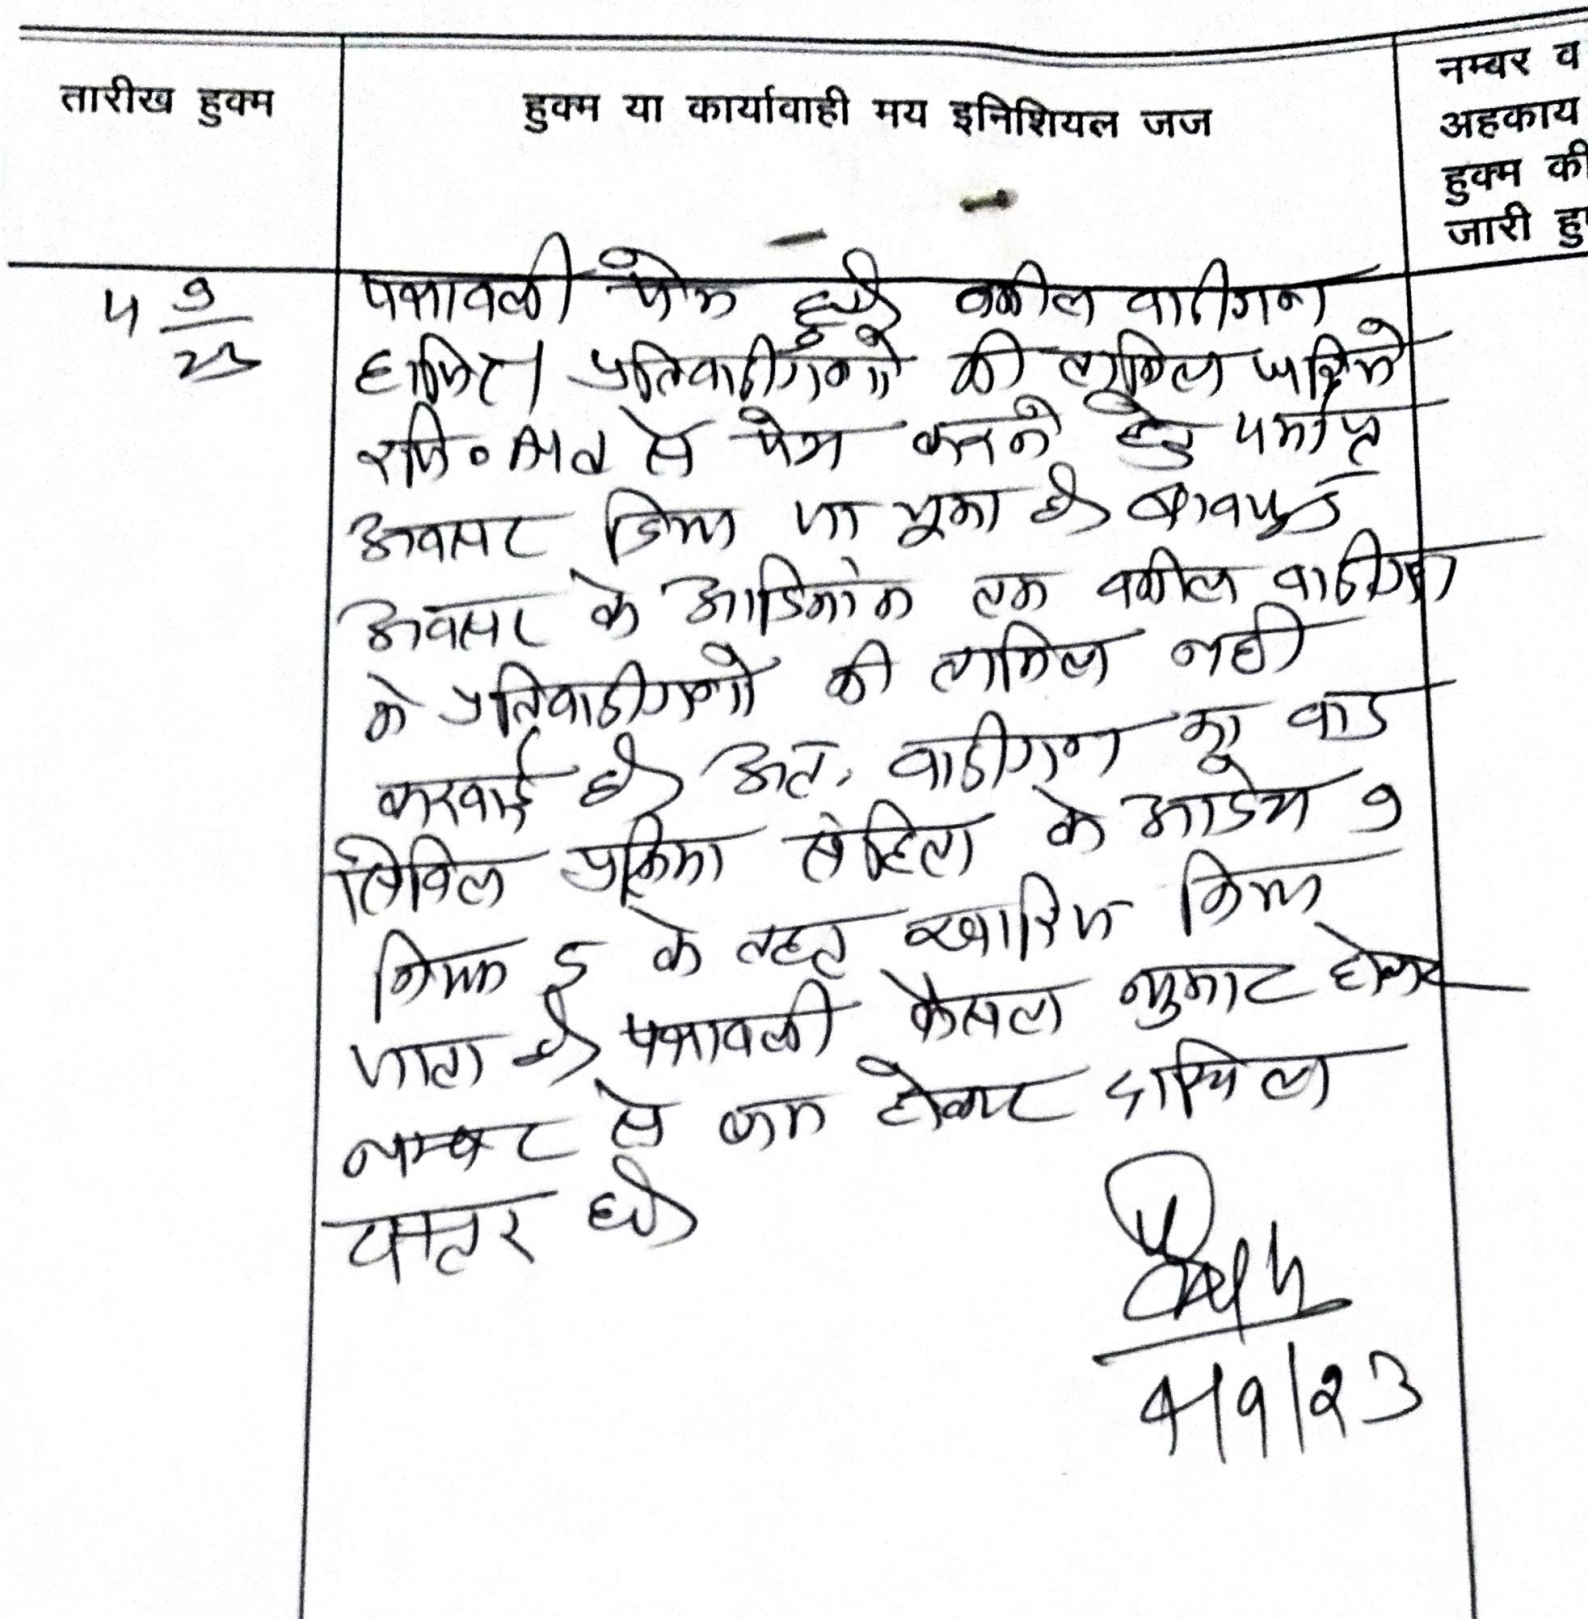 तारीख हुक्म
हुक्म या कार्यावाही मय इनिशियल जज
नम्बर व
अहकाय
हुक्म की
जारी हु
4 9/23
पत्रावली पेश हुई वकील वादीगण
हाजिर। प्रतिवादीगणों की तामिल जरिये
रजि० से पेश करने हेतु पर्याप्त
अवसर दिया जा चुका है बावजूद
अवसर के आदिनांक तक वकील वादीगण
के प्रतिवादीगणों की तामिल नही
करवाई है अतः वादीगण का वाद
सिविल प्रक्रिया संहिता के आदेश 9
नियम 5 के तहत खारिज किया
जाता है पत्रावली फैसल शुमार होकर
नम्बर से कम होकर दाखिल
दफ्तर हो
4/9/23